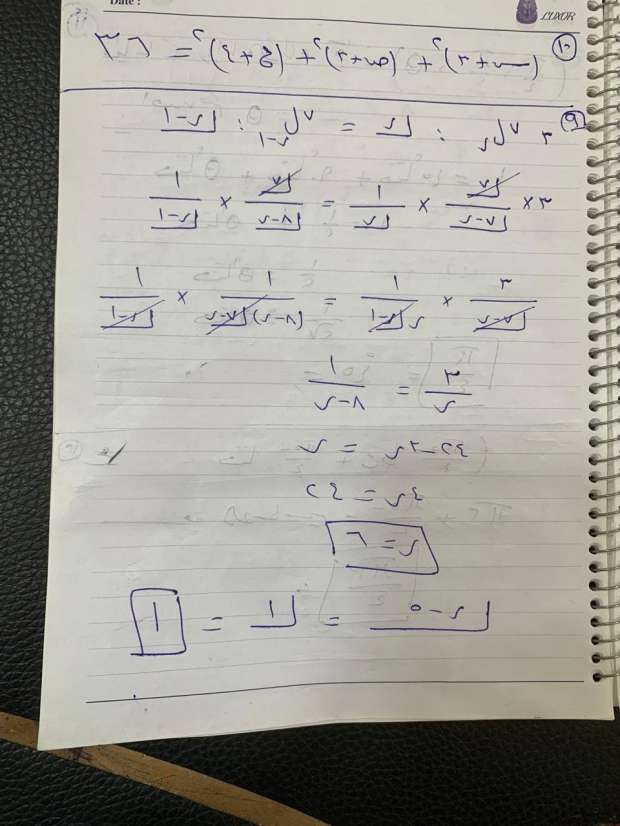 Date :
LUXOR
١٠ (س+٢)^٢ + (ص+٢)^٢ + (ع+٤)^٢ = ٣٦
٩ ٣ ٧ل ر : ⌊ر = ٧ل ر-١ : ⌊ر-١
٣ × ⌊٧ / ⌊٧-ر × ١ / ⌊ر = ⌊٧ / ⌊٨-ر × ١ / ⌊ر-١
٣ / ⌊٧-ر × ١ / ر⌊ر-١ = ١ / (٨-ر)⌊٧-ر × ١ / ⌊ر-١
٣ / ر = ١ / ٨-ر
٢٤-٣ر = ر
٤ر = ٢٤
ر = ٦
⌊ر-٥ = ⌊١ = ١